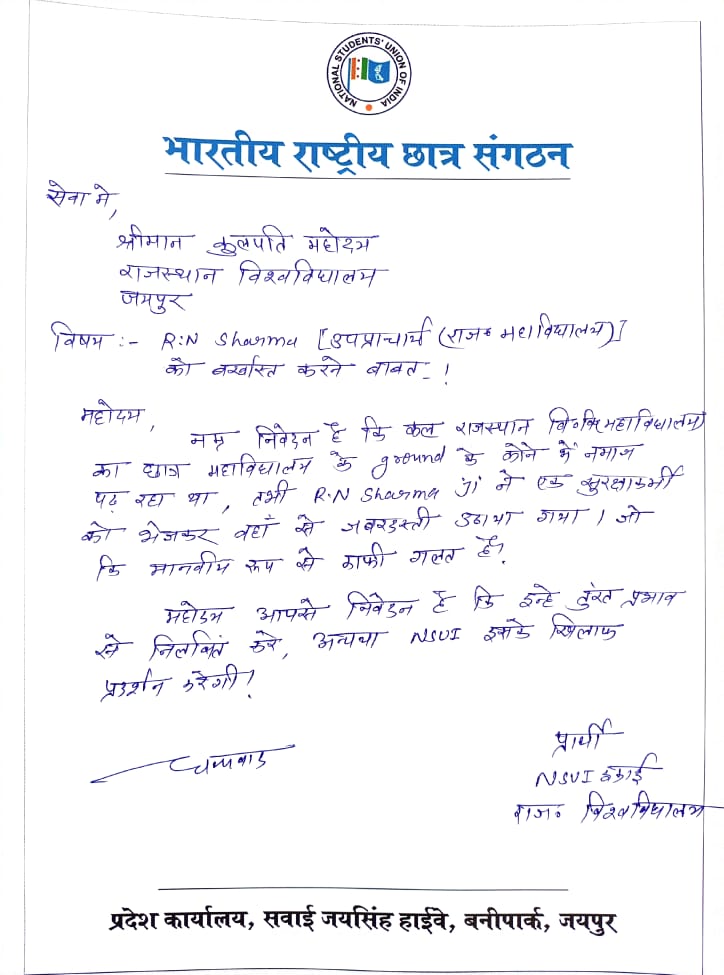 NATIONAL STUDENTS' UNION OF INDIA
भारतीय राष्ट्रीय छात्र संगठन
सेवा मे,
श्रीमान कुलपति महोदय
राजस्थान विश्वविद्यालय
जयपुर
विषय :- R.N Sharma [उपप्राचार्य (राज॰ महाविद्यालय)]
को बर्खास्त करने बाबत - !
महोदय,
नम्र निवेदन है कि कल राजस्थान वि॰वि महाविद्यालय
का छात्र महाविद्यालय के ground के कोने में नमाज
पढ़ रहा था, तभी R.N Sharma जी ने एक सुरक्षाकर्मी
को भेजकर वहाँ से जबरदस्ती उठाया गया। जो
कि मानवीय रूप से काफी गलत है।
महोदय आपसे निवेदन है कि इन्हे तुरंत प्रभाव
से निलंबित करे, अन्यथा NSUI इसके खिलाफ
प्रदर्शन करेगी!
धन्यवाद
प्रार्थी
NSUI इकाई
राज॰ विश्वविद्यालय
प्रदेश कार्यालय, सवाई जयसिंह हाईवे, बनीपार्क, जयपुर